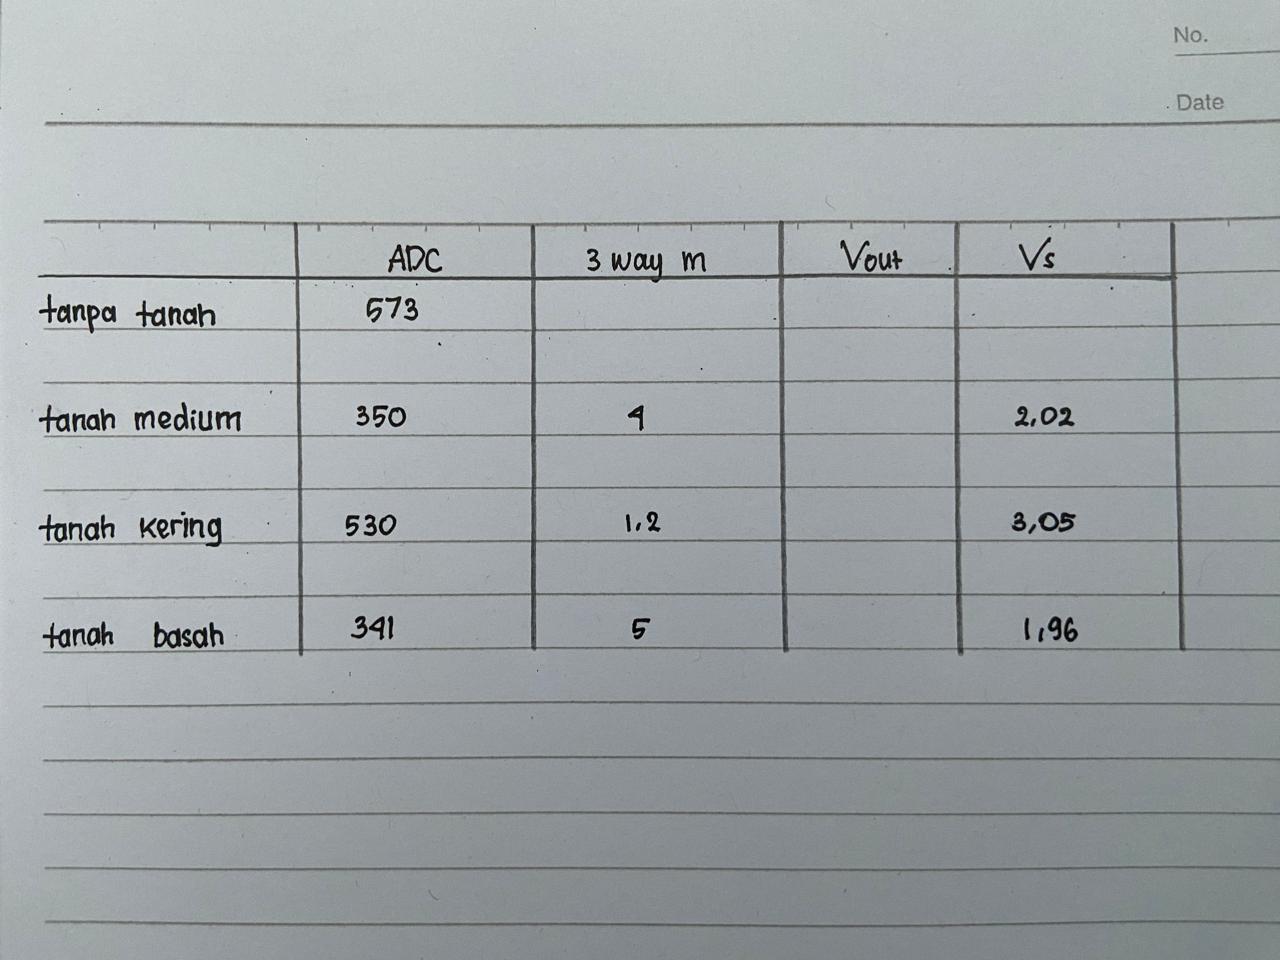 No.
Date
ADC 3 way m Vout Vs
tanpa tanah 573
tanah medium 350 4 2,02
tanah kering 530 1.2 3,05
tanah basah 341 5 1,96